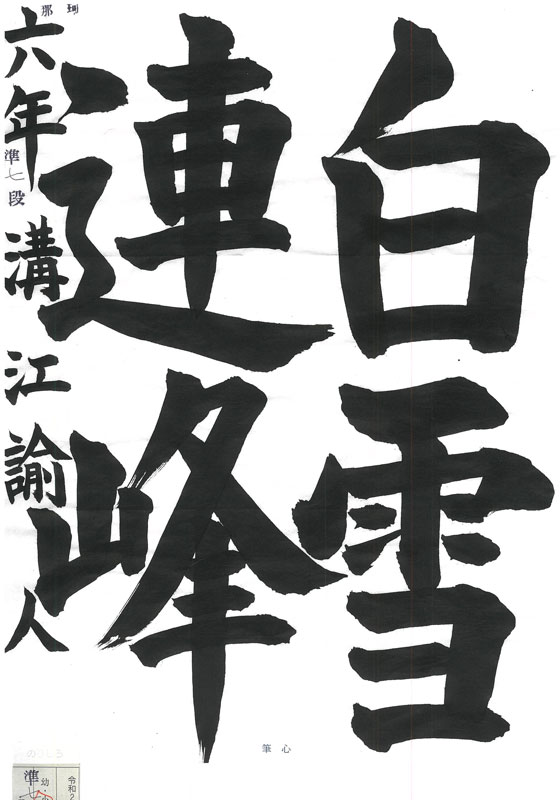 白雪
連峰
六年 準七段 溝江諭人
心筆
準
幼・
令和2